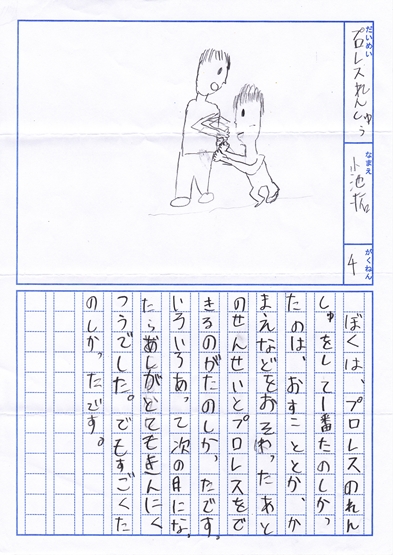 だいめい
プロレスれんしゅう
なまえ
小池
がくねん
4
ぼくは、プロレスのれん
しゅをして1番たのしかっ
たのは、おすこととか、か
まえなどをおそわったあと
のせんせいとプロレスをで
きるのがたのしかったです。
いろいろあって次の日になっ
たらあしがとてもきんにく
つうでした。でもすごくた
のしかったです。